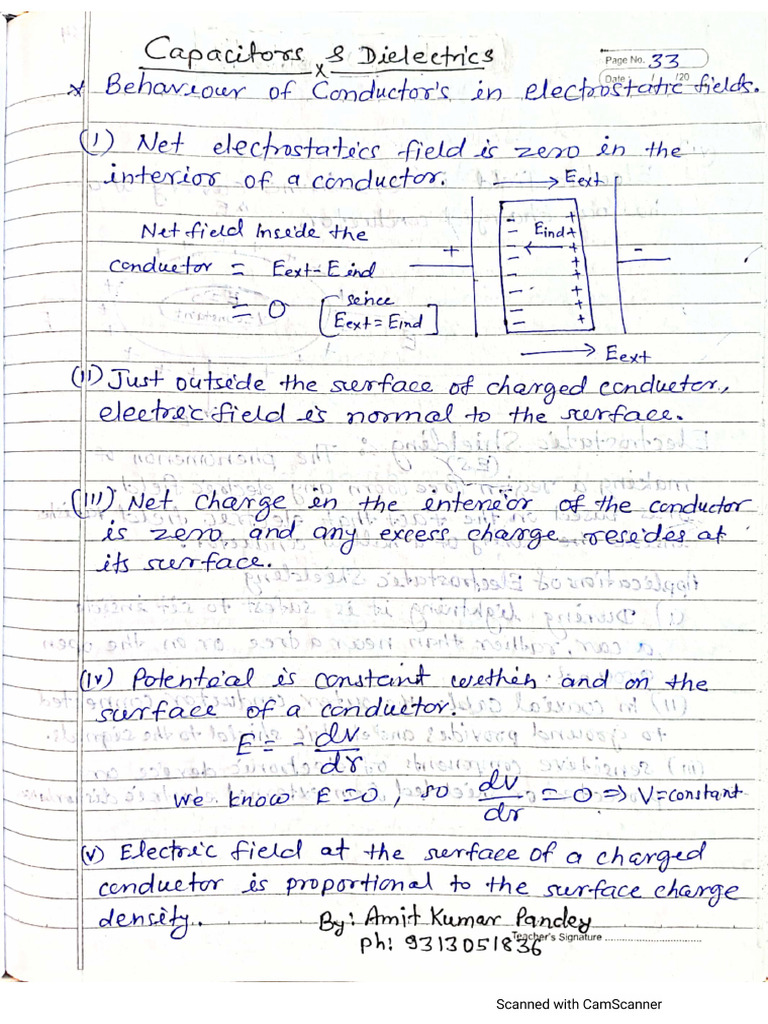 Capacitors & Dielectrics
x
Page No. 33
Date: / /20
* Behaviour of Conductor's in electrostatic fields.
(I) Net electrostatics field is zero in the
interior of a conductor.
→ Eext
Net field Inside the
conductor = Eext - Eind
= 0 [since Eext = Eind]
+ - Eind + -
→ Eext
(II) Just outside the surface of charged conductor,
electric field is normal to the surface.
(III) Net charge in the interior of the conductor
is zero and any excess charge resides at
its surface.
(IV) Potential is constant within and on the
surface of a conductor.
E = - dv/dr
We know E = 0, so dv/dr = 0 ⇒ V = constant
(V) Electric field at the surface of a charged
conductor is proportional to the surface charge
density.
By: Amit Kumar Pandey
Teacher's Signature
Ph: 9313051836
Scanned with CamScanner